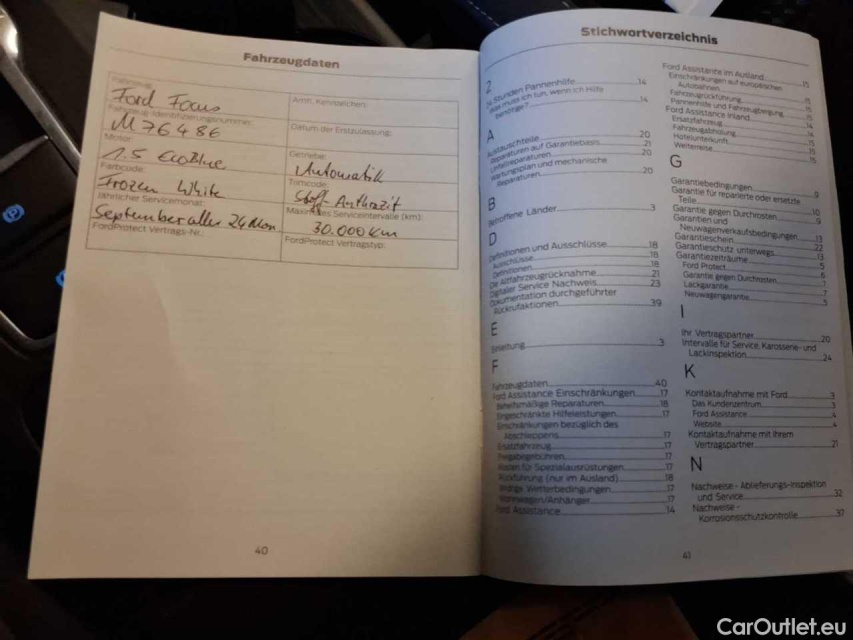 Fahrzeugdaten
Fahrzeug:
Ford Focus
Amtl. Kennzeichen:
Fahrzeug-Identifizierungsnummer:
M76486
Datum der Erstzulassung:
Motor:
1.5 EcoBlue
Getriebe:
Automatik
Farbcode:
Frozen White
Trimcode:
Stoff-Anthrazit
Jährlicher Servicemonat:
September aller 24 Mon
Maximales Serviceintervalle (km):
30.000 km
FordProtect Vertrags-Nr.:
FordProtect Vertragstyp:
40
Stichwortverzeichnis
2
24 Stunden Pannenhilfe 14
Was muss ich tun, wenn ich Hilfe
benötige? 14
A
Austauschteile 20
Reparaturen auf Garantiebasis 21
Unfallreparaturen 20
Wartungsplan und mechanische
Reparaturen 20
B
Betroffene Länder 3
D
Definitionen und Ausschlüsse 18
Ausschlüsse 18
Definitionen 18
Die Altfahrzeugrücknahme 21
Digitaler Service Nachweis 23
Dokumentation durchgeführter
Rückrufaktionen 39
E
Einleitung 3
F
Fahrzeugdaten 40
Ford Assistance Einschränkungen 17
Behelfsmäßige Reparaturen 18
Eingeschränkte Hilfeleistungen 17
Einschränkungen bezüglich des
Abschleppens 17
Ersatzfahrzeug 17
Freigabegebühren 17
Kosten für Spezialausrüstungen 17
Rückführung (nur im Ausland) 18
Widrige Wetterbedingungen 17
Wohnwagen/Anhänger 17
Ford Assistance 14
Ford Assistance im Ausland 15
Einschränkungen auf europäischen
Autobahnen 15
Fahrzeugrückführung 15
Pannenhilfe und Fahrzeugbergung 15
Ford Assistance Inland 14
Ersatzfahrzeug 14
Fahrzeugabholung 15
Hotelunterkunft 15
Weiterreise 15
G
Garantiebedingungen 9
Garantie für reparierte oder ersetzte
Teile 10
Garantie gegen Durchrosten 9
Garantien und
Neuwagenverkaufsbedingungen 13
Garantieschein 22
Garantieschutz unterwegs 13
Garantiezeiträume 5
Ford Protect 6
Garantie gegen Durchrosten 7
Lackgarantie 7
Neuwagengarantie 5
I
Ihr Vertragspartner 20
Intervalle für Service, Karosserie- und
Lackinspektion 24
K
Kontaktaufnahme mit Ford 3
Das Kundenzentrum 3
Ford Assistance 4
Website 4
Kontaktaufnahme mit Ihrem
Vertragspartner 21
N
Nachweise - Ablieferungs-Inspektion
und Service 32
Nachweise -
Korrosionsschutzkontrolle 37
41
CarOutlet.eu